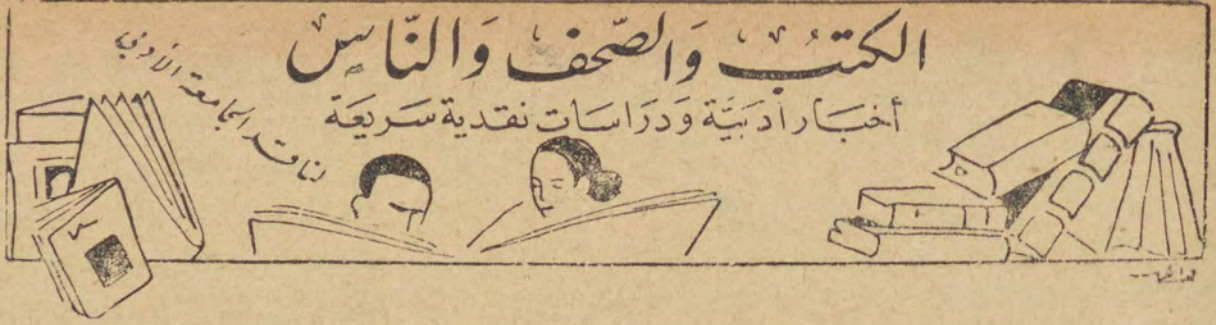 الكتبُ وَالصّحف وَالنّاس
أخبَار أدَبيَّة وَدرَاسَات نقدية سَريعَة
لناقد الجامعة الأدبي